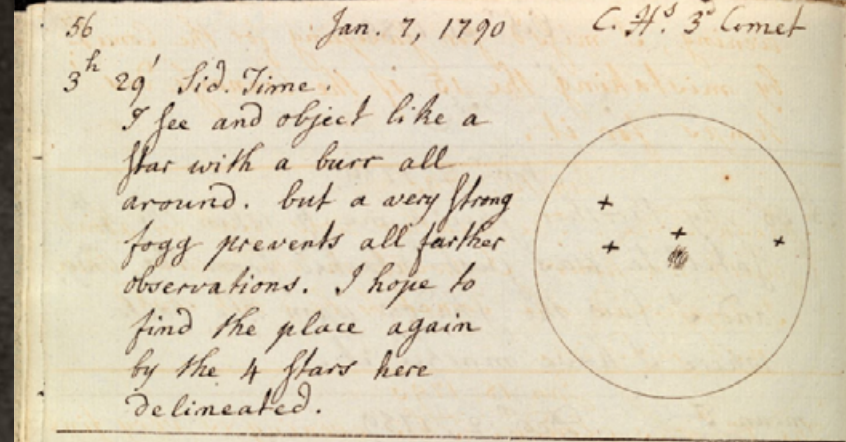 56 Jan. 7, 1790 C. H.s 3d Comet
3h 29' Sid. Time.
I see and object like a
star with a burr all
around. but a very strong
fogg prevents all farther
observations. I hope to
find the place again
by the 4 stars here
delineated.